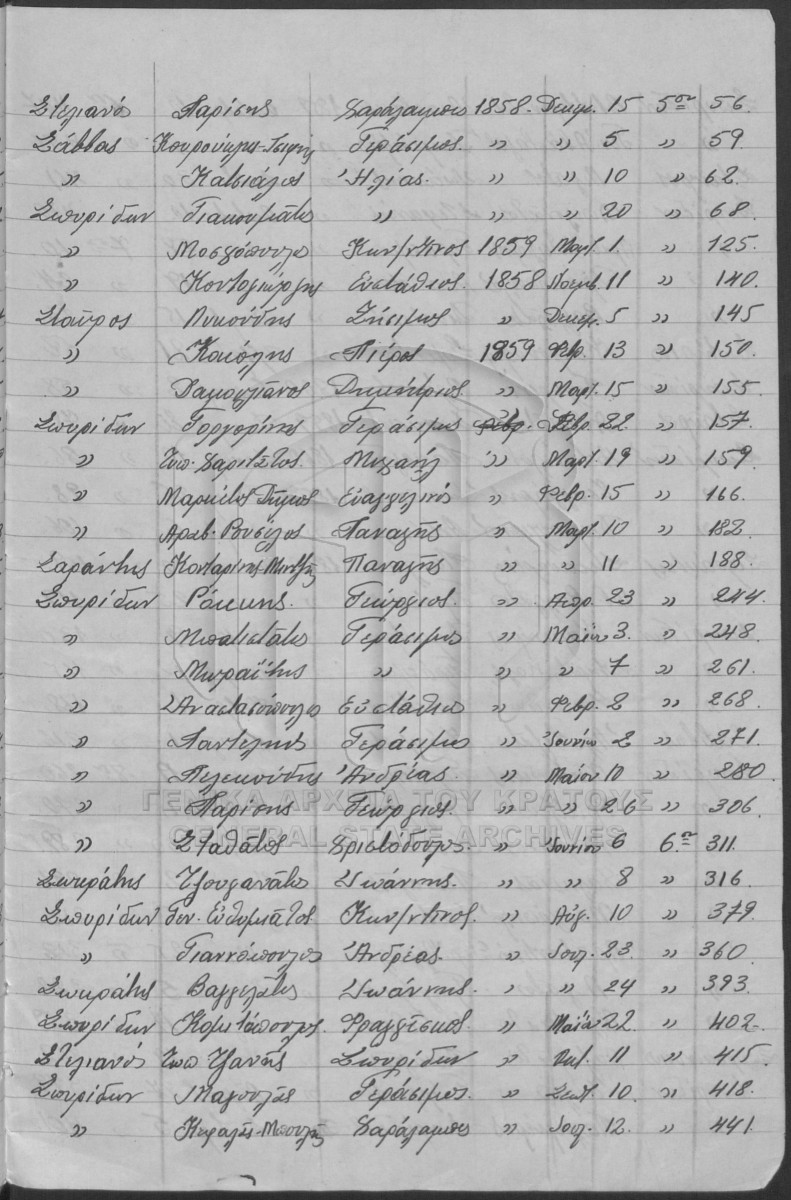 Στελιανός Παρίσης Χαράλαμπος 1858 Δεκεμ. 15 5ον 56
Σάββας Κουρούκλης-Τσιφής Γεράσιμος ” ” 5 ” 59.
” Κατσιάλος Ἠλίας ” ” 10 ” 62.
Σπυρίδων Γιακουμάτος ” ” ” 20 ” 68.
” Μοσχόπουλος Κων/ντῖνος 1859 Μαρτ. 1 ” 125.
” Κοντογιώργης Εὐστάθιος 1858 Νοεμβ. 11 ” 140.
Σταῦρος Λυκούδης Ζήσιμος ” Δεκεμ. 5 ” 145
” Κακόλης Πιέρος 1859 Φεβρ. 13 ” 150.
” Δαμουλιάνος Δημήτριος ” Μαρτ. 15 ” 155.
Σπυρίδων Γρηγορίνης Γεράσιμος Φεβρ. 22 ” 157.
” Χαριτᾶτος Μιχαήλ ” Μαρτ. 19 ” 159.
” Μαρκέτος Δῆμος Εὐαγγελινός ” Φεβρ. 15 ” 166.
” Ἀρσεν. Ρουσέλος Παναγῆς ” Μαρτ. 10 ” 182.
Σαράντης Κονταρίνης Παναγῆς ” ” 11 ” 188.
Σπυρίδων Ράκκης. Γεώργιος. ” Απρ. 23 ” 244.
” Μπατιστάτος Γεράσιμος ” Μαΐου 3. ” 248.
” Μωραΐτης ” ” ” 7 ” 261.
” Ἀναστασόπουλος Εὐστάθιος ” Φεβρ. 2 ” 268.
” Παντελῆος Γεράσιμος ” Ἰουνίου 2 ” 271.
” Πελεκούδης Ἀνδρέας. ” Μαΐου 10 ” 280.
” Παρίσης Γεώργιος. ” ” 26 ” 306.
” Σταθάτος Χριστόδουλος. ” Ἰουνίου 6 6ον 311.
Σωκράτης Τζουγανάτος Ἰωάννης. ” ” 8 ” 316.
Σπυρίδων Γον. Εὐθυμιάτος Κων/ντῖνος. ” Αὐγ. 10 ” 379.
” Γιαννόπουλος Ἀνδρέας. ” Ἰουλ. 23 ” 360.
Σωκράτης Βαγγελάτος Ἰωάννης. ” ” 24 ” 393.
Σπυρίδων Κομιτόπουλος. Φραγγέσκος. ” Μαΐου 22 ” 402.
Στελιανός Τζανῆς Σπυρίδων ” Ὀκτ. 11 ” 415.
Σπυρίδων Μαγουλᾶς Γεράσιμος. ” Σεπτ. 10 ” 418.
” Κεφαλᾶς-Μπουλῆς Χαράλαμπος ” Ἰουλ. 12. ” 441.
ΓΕΝΙΚΑ ΑΡΧΕΙΑ ΤΟΥ ΚΡΑΤΟΥΣ
GENERAL STATE ARCHIVES